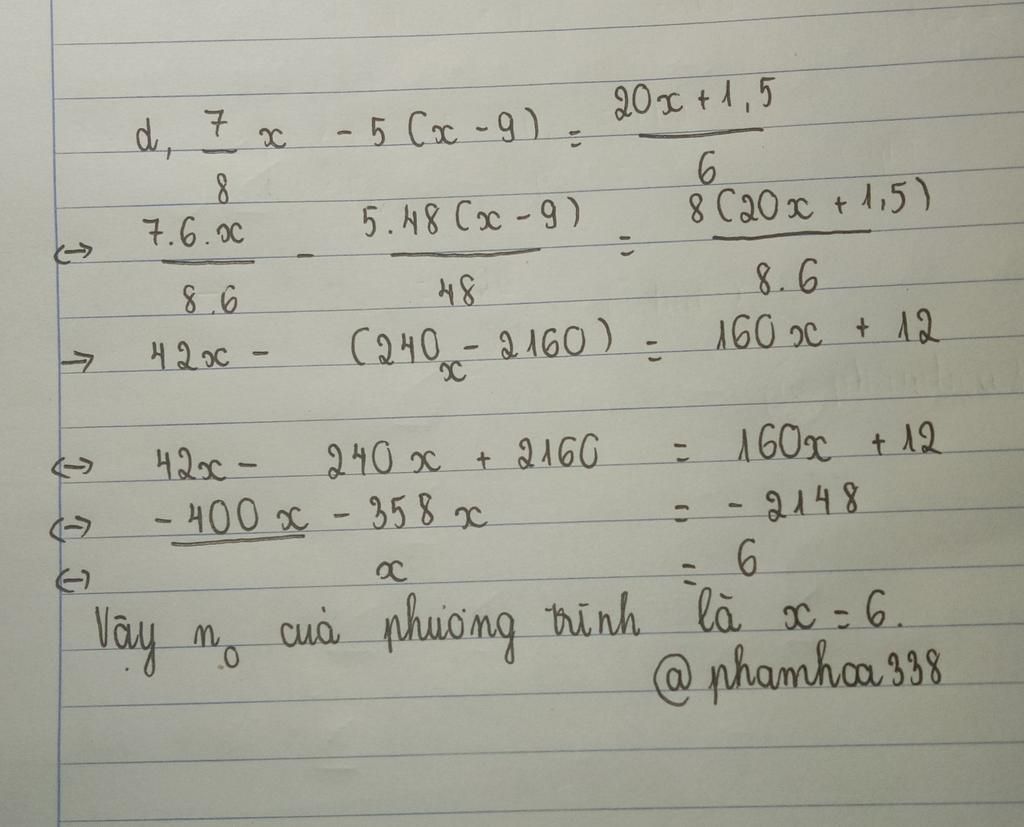 d, 7/8 x - 5 (x - 9) = 20x + 1,5 / 6
<-> 7.6.x / 8.6 - 5.48 (x - 9) / 48 = 8 (20x + 1,5) / 8.6
-> 42x - (240x - 2160) = 160x + 12
<-> 42x - 240x + 2160 = 160x + 12
<-> - 400x - 358x = - 2148
<-> x = 6
Vậy no của phương trình là x = 6.
@phamhoa338